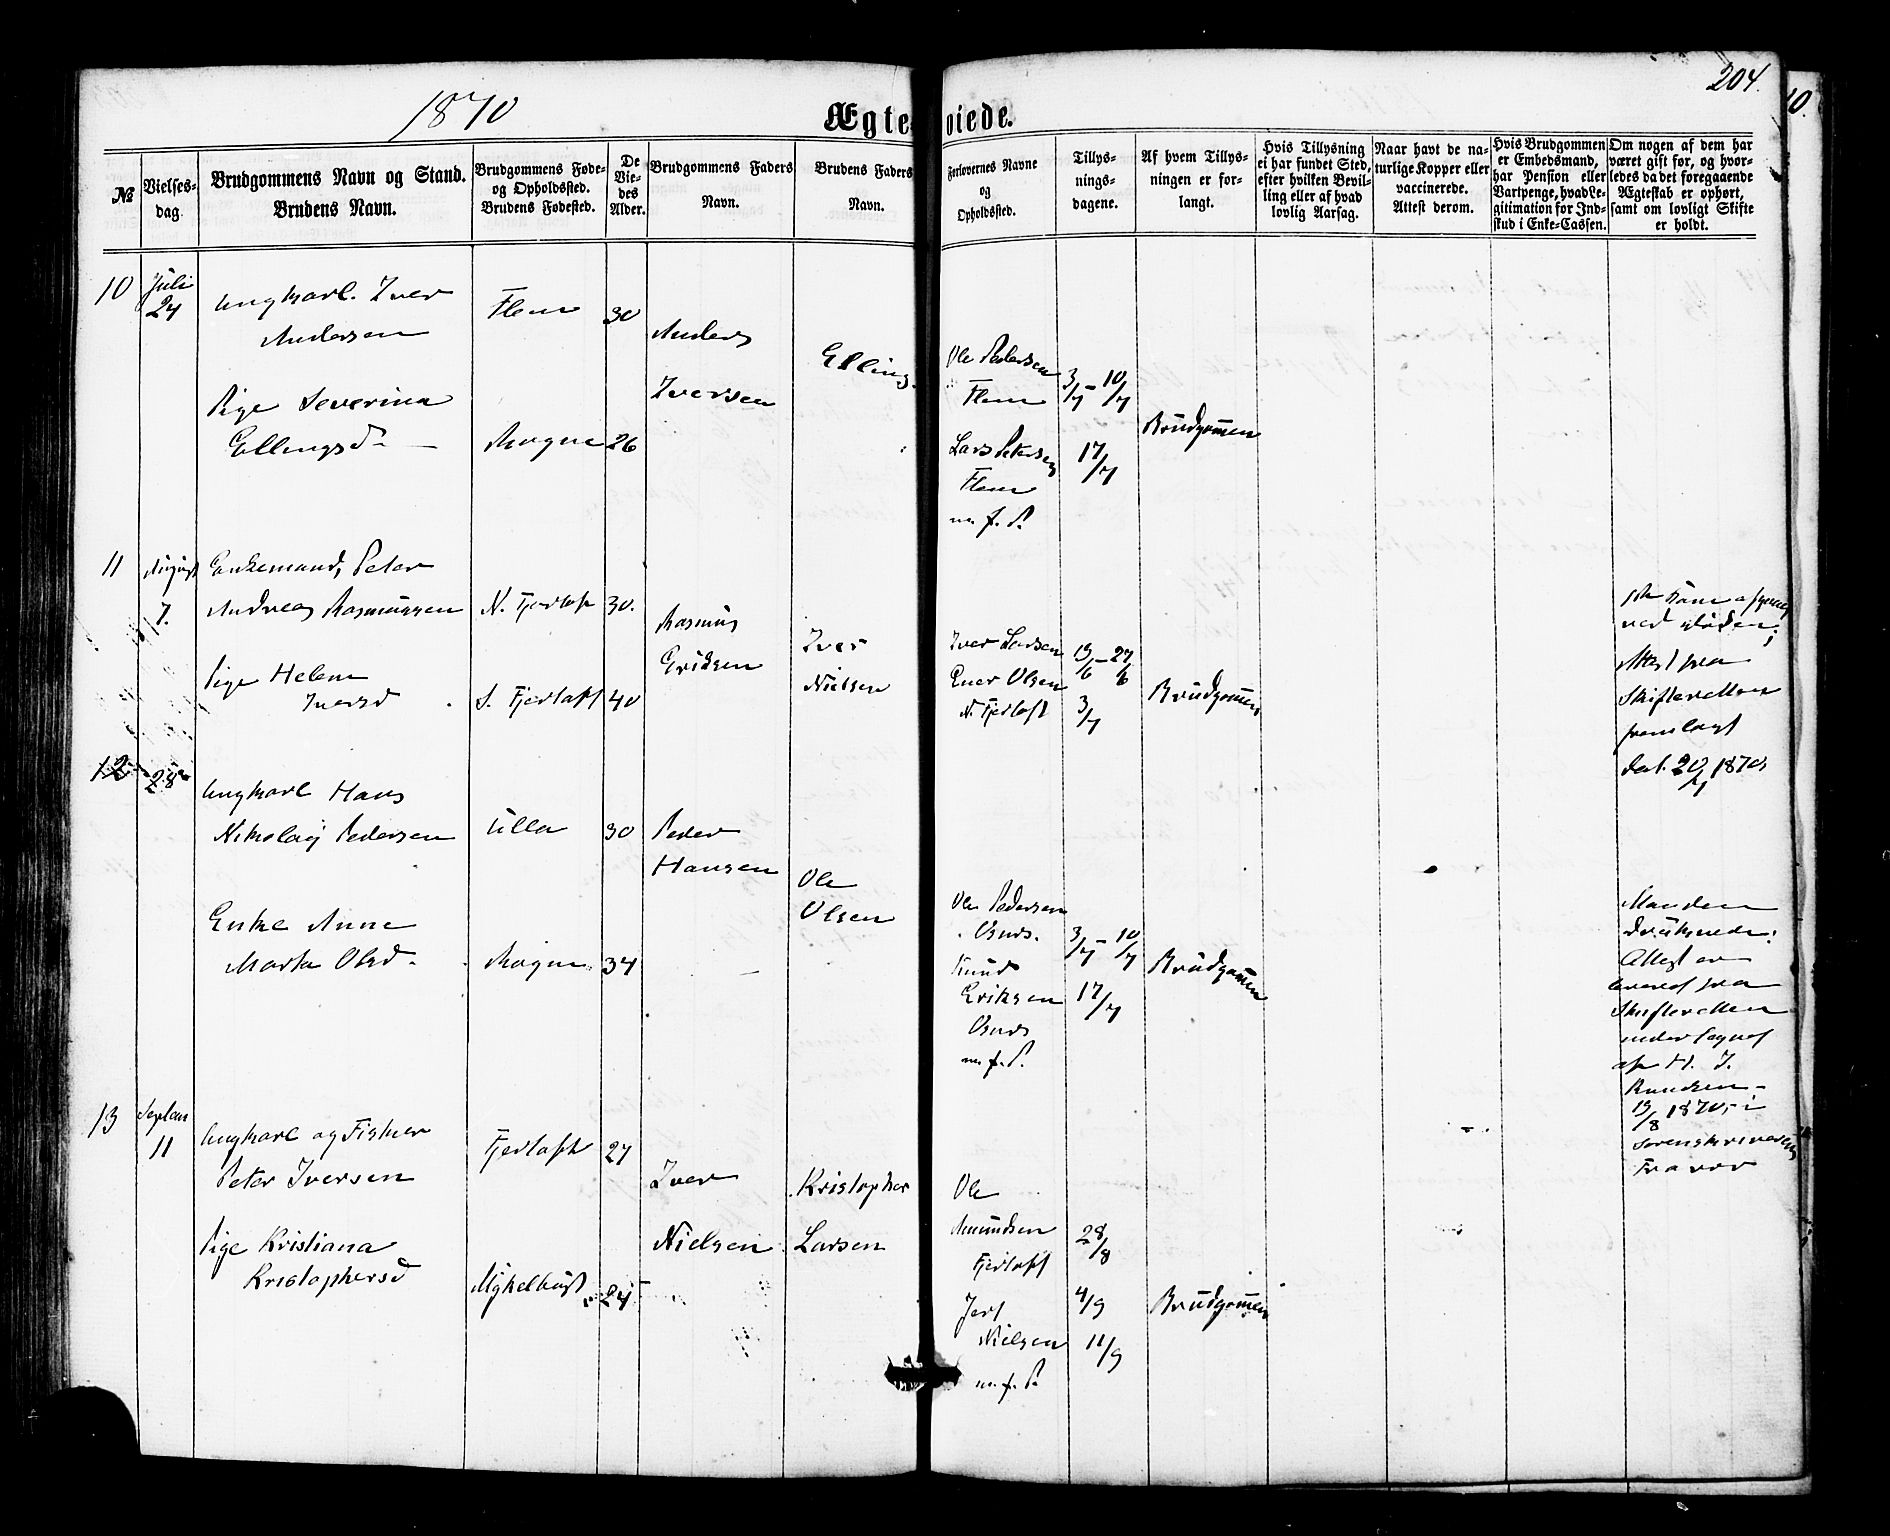 204.
1870
Ægteviede.
№
Vielses-
dag.
Brudgommens Navn og Stand.
Brudens Navn.
Brudgommens Føde-
og Opholdssted.
Brudens Fødested.
De
Vie-
des
Alder.
Brudgommens Faders
Navn.
Brudens Faders
Navn.
Forlovernes Navne
og
Opholdssted.
Tillys-
nings-
dagene.
Af hvem Tillys-
ningen er for-
langt.
Hvis Tillysning
ei har fundet Sted,
efter hvilken Bevil-
ling eller af hvad
lovlig Aarsag.
Naar havt de na-
turlige Kopper eller
vaccinerede.
Attest derom.
Hvis Brudgommen
er Embedsmand,
har Pension eller
Vartpenge, hvad Le-
gitimation for Ind-
skud i Enke-Cassen.
Om nogen af dem har
været gift før, og hvor-
ledes da det foregaaende
Ægteskab er ophørt,
samt om lovligt Skifte
er holdt.
10
Juli
24
Ungkarl. Iver
Andersen
Flem
30
Anders
Iversen
Pige Severina
Ellingsd.
Rogne
26
Elling
Ole Pedersen
Flem
Lars Petersen
Flem
m. f. P.
3/7 – 10/7
17/7
Brudgommen
11
August
7.
Enkemand, Peter
Andreas Rasmussen
N. Fjertoft
30.
Rasmus
Eriksen
Pige Helene
Iversd
S. Fjertoft
40
Iver
Nielsen
Iver Larsen
Ener Olsen
N. Fjertoft
19/6 – 27/6
3/7
Brudgommen
ved Døden;
Attest fra
Skifteretten
fremlagt
dat. 20/7 1870
12
28
Ungkarl Hans
Nikolaij Pedersen
Ulla
30
Peder
Hansen
Enke Anne
Marta Olsd.
Rogne
34
Ole
Olsen
Ole Pedersen
Osnes.
Knud
Eriksen
Osnes
m. f. P.
3/7 – 10/7
17/7
Brudgommen
Manden
druknede.
Attest er
leveret fra
Skifteretten
undertegnet
af H. J.
Knudsen –
19/8 1870, i
Sorenskriverens
Fravær
13
Septem
11
Ungkarl og Fisker
Peter Iversen
Fjertoft
27
Iver
Nielsen
Pige Kristiana
Kristophersd
Myklebust
24
Kristopher
Larsen
Ole
Amundsen
Fjertoft
Jert
Nielsen
m. f. P.
28/8
4/9
11/9
Brudgommen